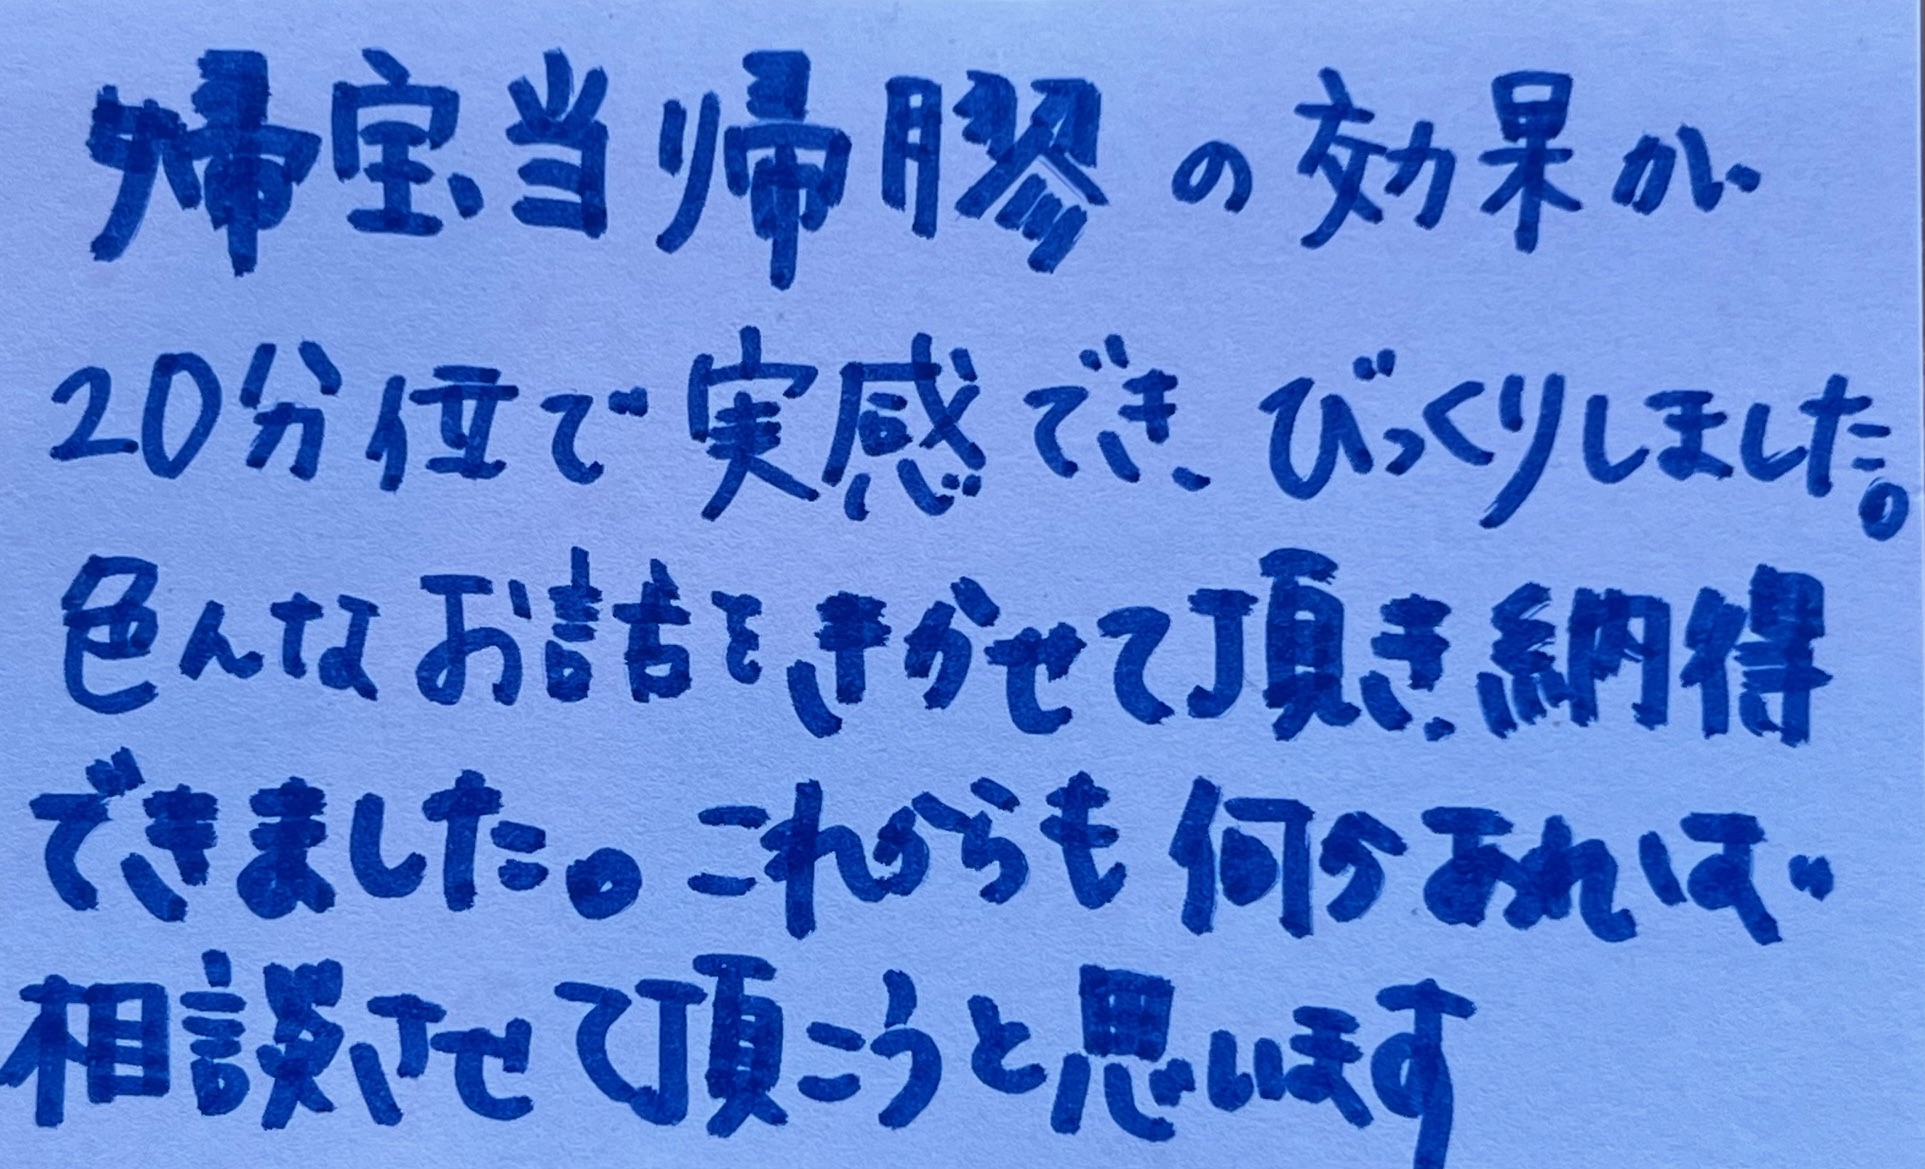 帰宝当帰膠の効果が
20分位で実感でき、びっくりしました。
色んなお話をきかせて頂き納得
できました。これからも何かあれば
相談させて頂こうと思います